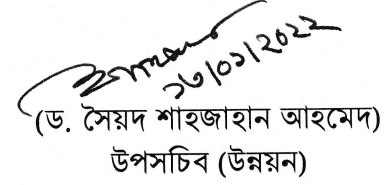 ১৩/০১/২০২২
(ড. সৈয়দ শাহজাহান আহমেদ)
উপসচিব (উন্নয়ন)